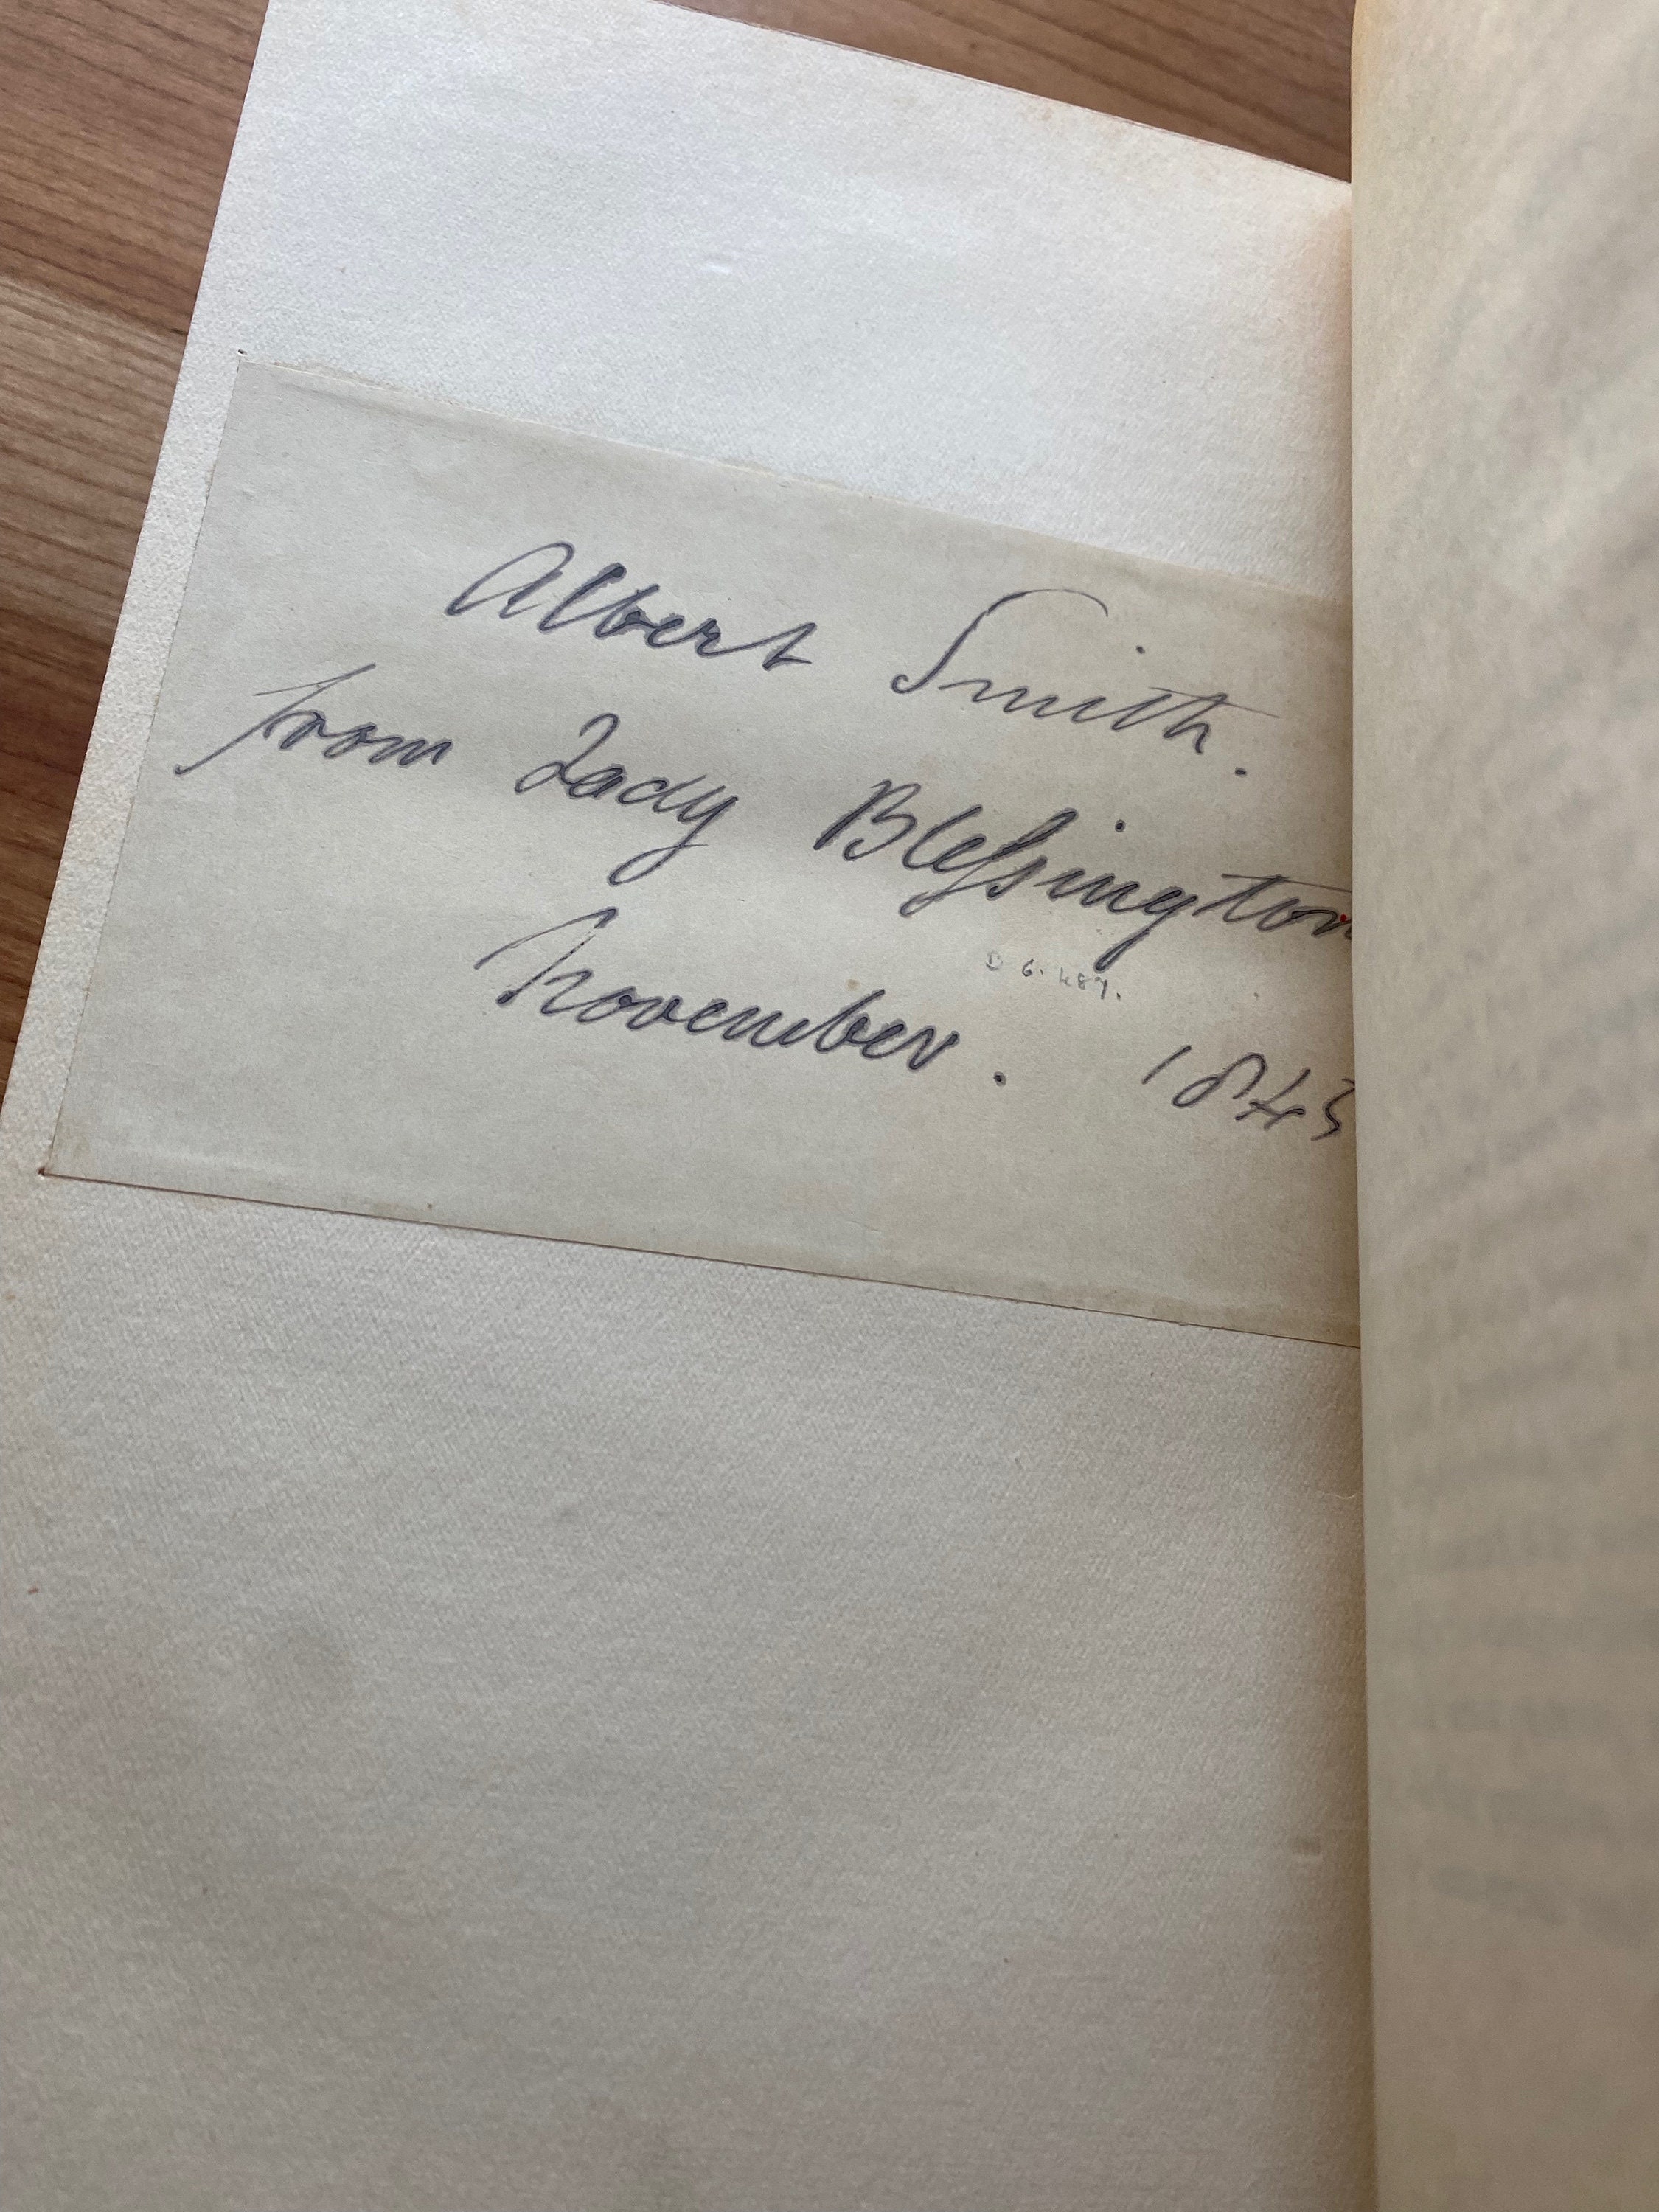 Albert Smith.
from Lady Bleſsington
November. 1845